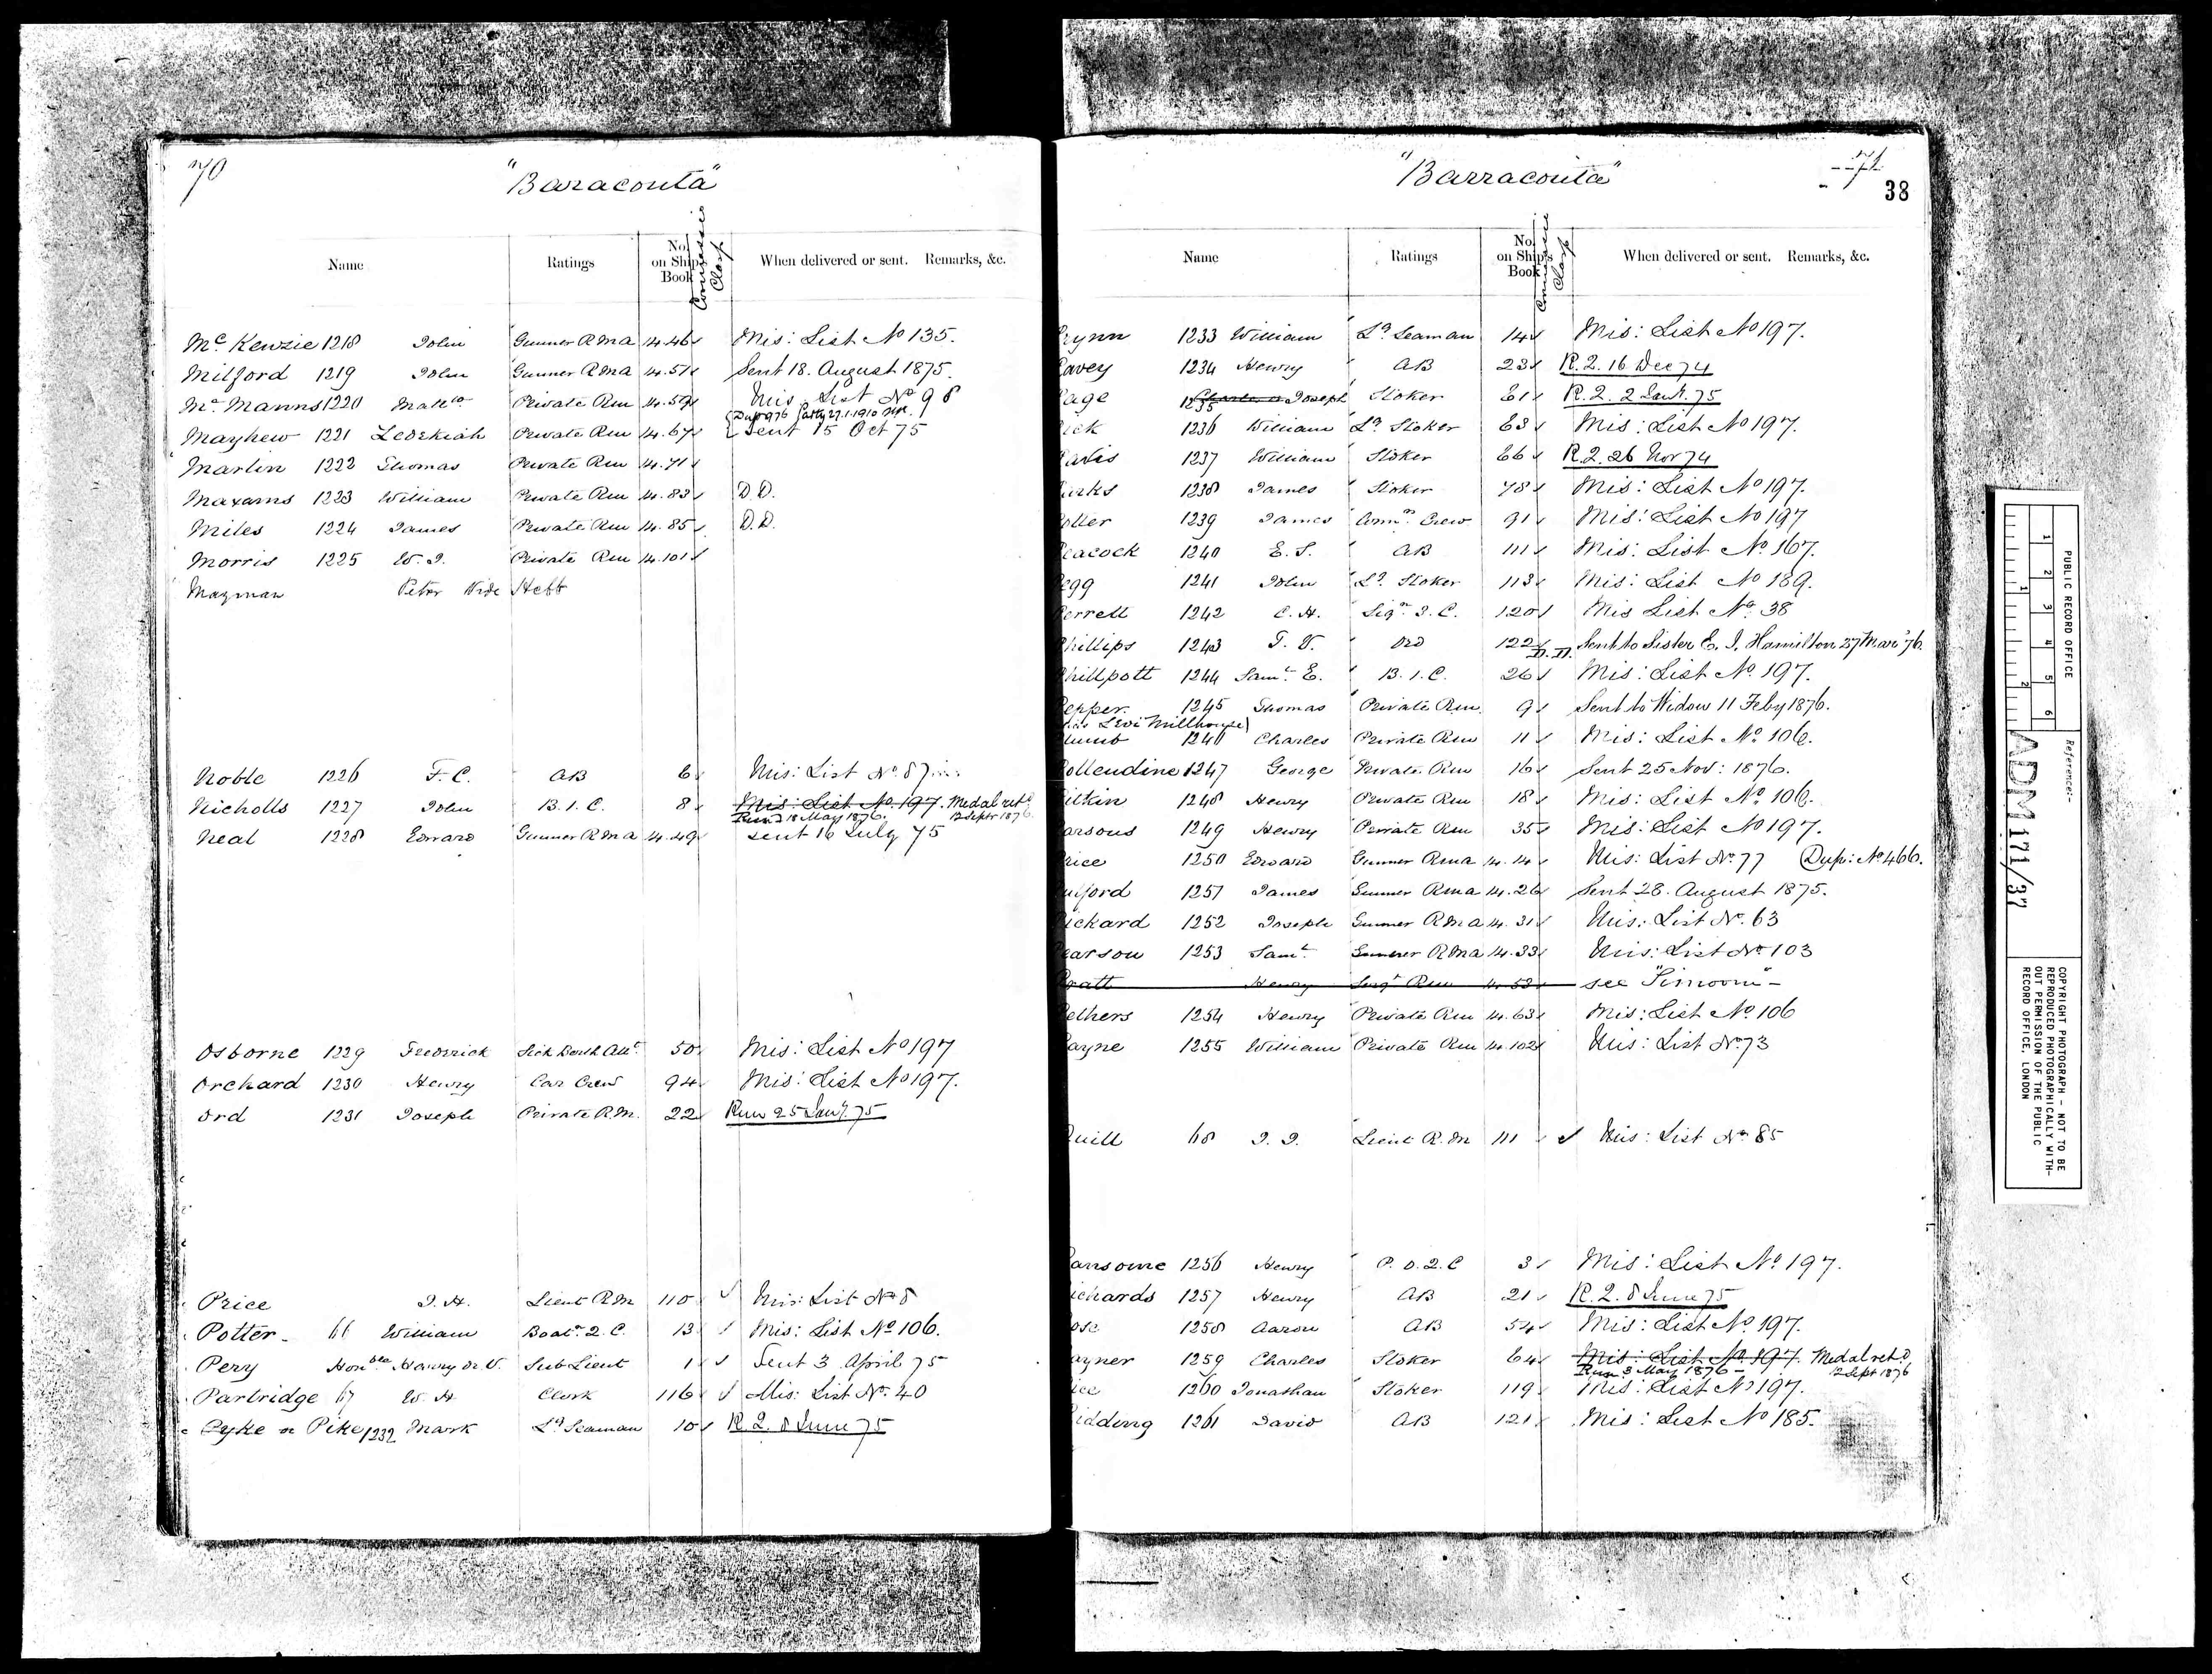 70
"Baracouta"
Name Ratings No. on Ship's Book When delivered or sent. Remarks, &c.
Mc Kenzie 1218 John Gunner RMA 14.46 Mis: List No 135.
Milford 1219 John Gunner RMA 14.51 Sent 18. August 1875.
Mc Manns 1220 Private Rm 14.59 Mis. List No 98
Mayhew 1221 Zedekiah Private Rm 14.67 Sent 15 Oct 75
Martin 1222 Thomas Private Rm 14.71
Maxams 1223 William Private Rm 14.83 D.D.
Miles 1224 James Private Rm 14.85 D.D.
Morris 1225 W. J. Private Rm 14.101
Mayman Peter Vide Hebb
Noble 1226 F. C. AB 6 Mis: List No. 87
Nicholls 1227 John B. 1. C. 8 Mis: List No 197. Medal retd
Run 18 May 1876. 12 Septr 1876
Neal 1228 Edward Gunner RMA 14.49 Sent 16 July 75
Osborne 1229 Frederick Sick Berth Attt. 50 Mis: List No 197
Orchard 1230 Henry Car Crew 94 Mis: List No 197.
Ord 1231 Joseph Private R.M. 22 Run 25 Jany. 75
Price J. H. Lieut RM 110 Mis: List No 8
Potter 66 William Boatn. 2. C. 13 Mis: List No 106.
Pery Honble Henry de V. Sub Lieut 1 Sent 3 April 75
Partridge 67 W. H. Clerk 116 Mis: List No. 40
Pyke or Pike 1232 Mark Lg Seaman 10 R.2. 8 June 75
"Barracouta"
71
38
Name Ratings No. on Ship's Book When delivered or sent. Remarks, &c.
rynn 1233 William Lg Seaman 14 Mis: List No 197.
avey 1234 Henry AB 23 R.2. 16 Dec 74
age 1235 Joseph Stoker 61 R.2. 2 Jany. 75
ick 1236 William Lg Stoker 63 Mis: List No 197.
1237 William Stoker 66 R.2. 26 Nov 74
1238 James Stoker 78 Mis: List No 197.
otter 1239 James Commrs. Crew 91 Mis: List No 197
eacock 1240 E. S. AB 111 Mis: List No. 167.
egg 1241 John Lg. Stoker 113 Mis: List No 189.
errett 1242 C. H. Sign. 3. C. 120 Mis List No. 38
hillips 1243 T. V. Ord 122 D.D. Sent to Sister E. J. Hamilton 27 Mar '76.
hillpott 1244 Saml. E. B. 1. C. 26 Mis: List No. 197.
epper. 1245 Thomas Private Rm. 9 Sent to Widow 11 Feby 1876.
Levi Millhouse)
lumb 1246 Charles Private Rm 11 Mis: List No. 106.
ollendine 1247 George Private Rm 16 Sent 25 Nov: 1876.
itkin 1248 Henry Private Rm 18 Mis: List No. 106.
arsons 1249 Henry Private Rm 35 Mis: List No 197.
rice 1250 Edward Gunner Rma 14.14 Mis: List No. 77 Dup: No 466.
ulford 1251 James Gunner Rma 14.26 Sent 28. August 1875.
ickard 1252 Joseph Gunner RMA 14.31 Mis: List No. 63
earson 1253 Saml. Gunner RMA 14.33 Mis: List No 103
ratt Henry Sergt Rm 14.53 see "Simoom"
ethers 1254 Henry Private Rm 14.63 Mis: List No 106
ayne 1255 William Private Rm 14.102 Mis: List No. 73
uill 68 J. J. Lieut R.M 111 Mis: List No. 85
ansome 1256 Henry P. O. 2. C 3 Mis: List No. 197.
ichards 1257 Henry AB 21 R.2. 8 June 75
ose 1258 Aaron AB 54 Mis: List No. 197.
ayner 1259 Charles Stoker 64 Mis: List No. 197. Medal retd
Run 3 May 1876 12 Sept 1876
ice 1260 Jonathan Stoker 119 Mis: List No 197.
idding 1261 David AB 121 Mis: List No 185.
PUBLIC RECORD OFFICE
1 2 3 4 5 6
1 2
Reference:-
ADM 171/37
COPYRIGHT PHOTOGRAPH - NOT TO BE
REPRODUCED PHOTOGRAPHICALLY WITH-
OUT PERMISSION OF THE PUBLIC
RECORD OFFICE, LONDON